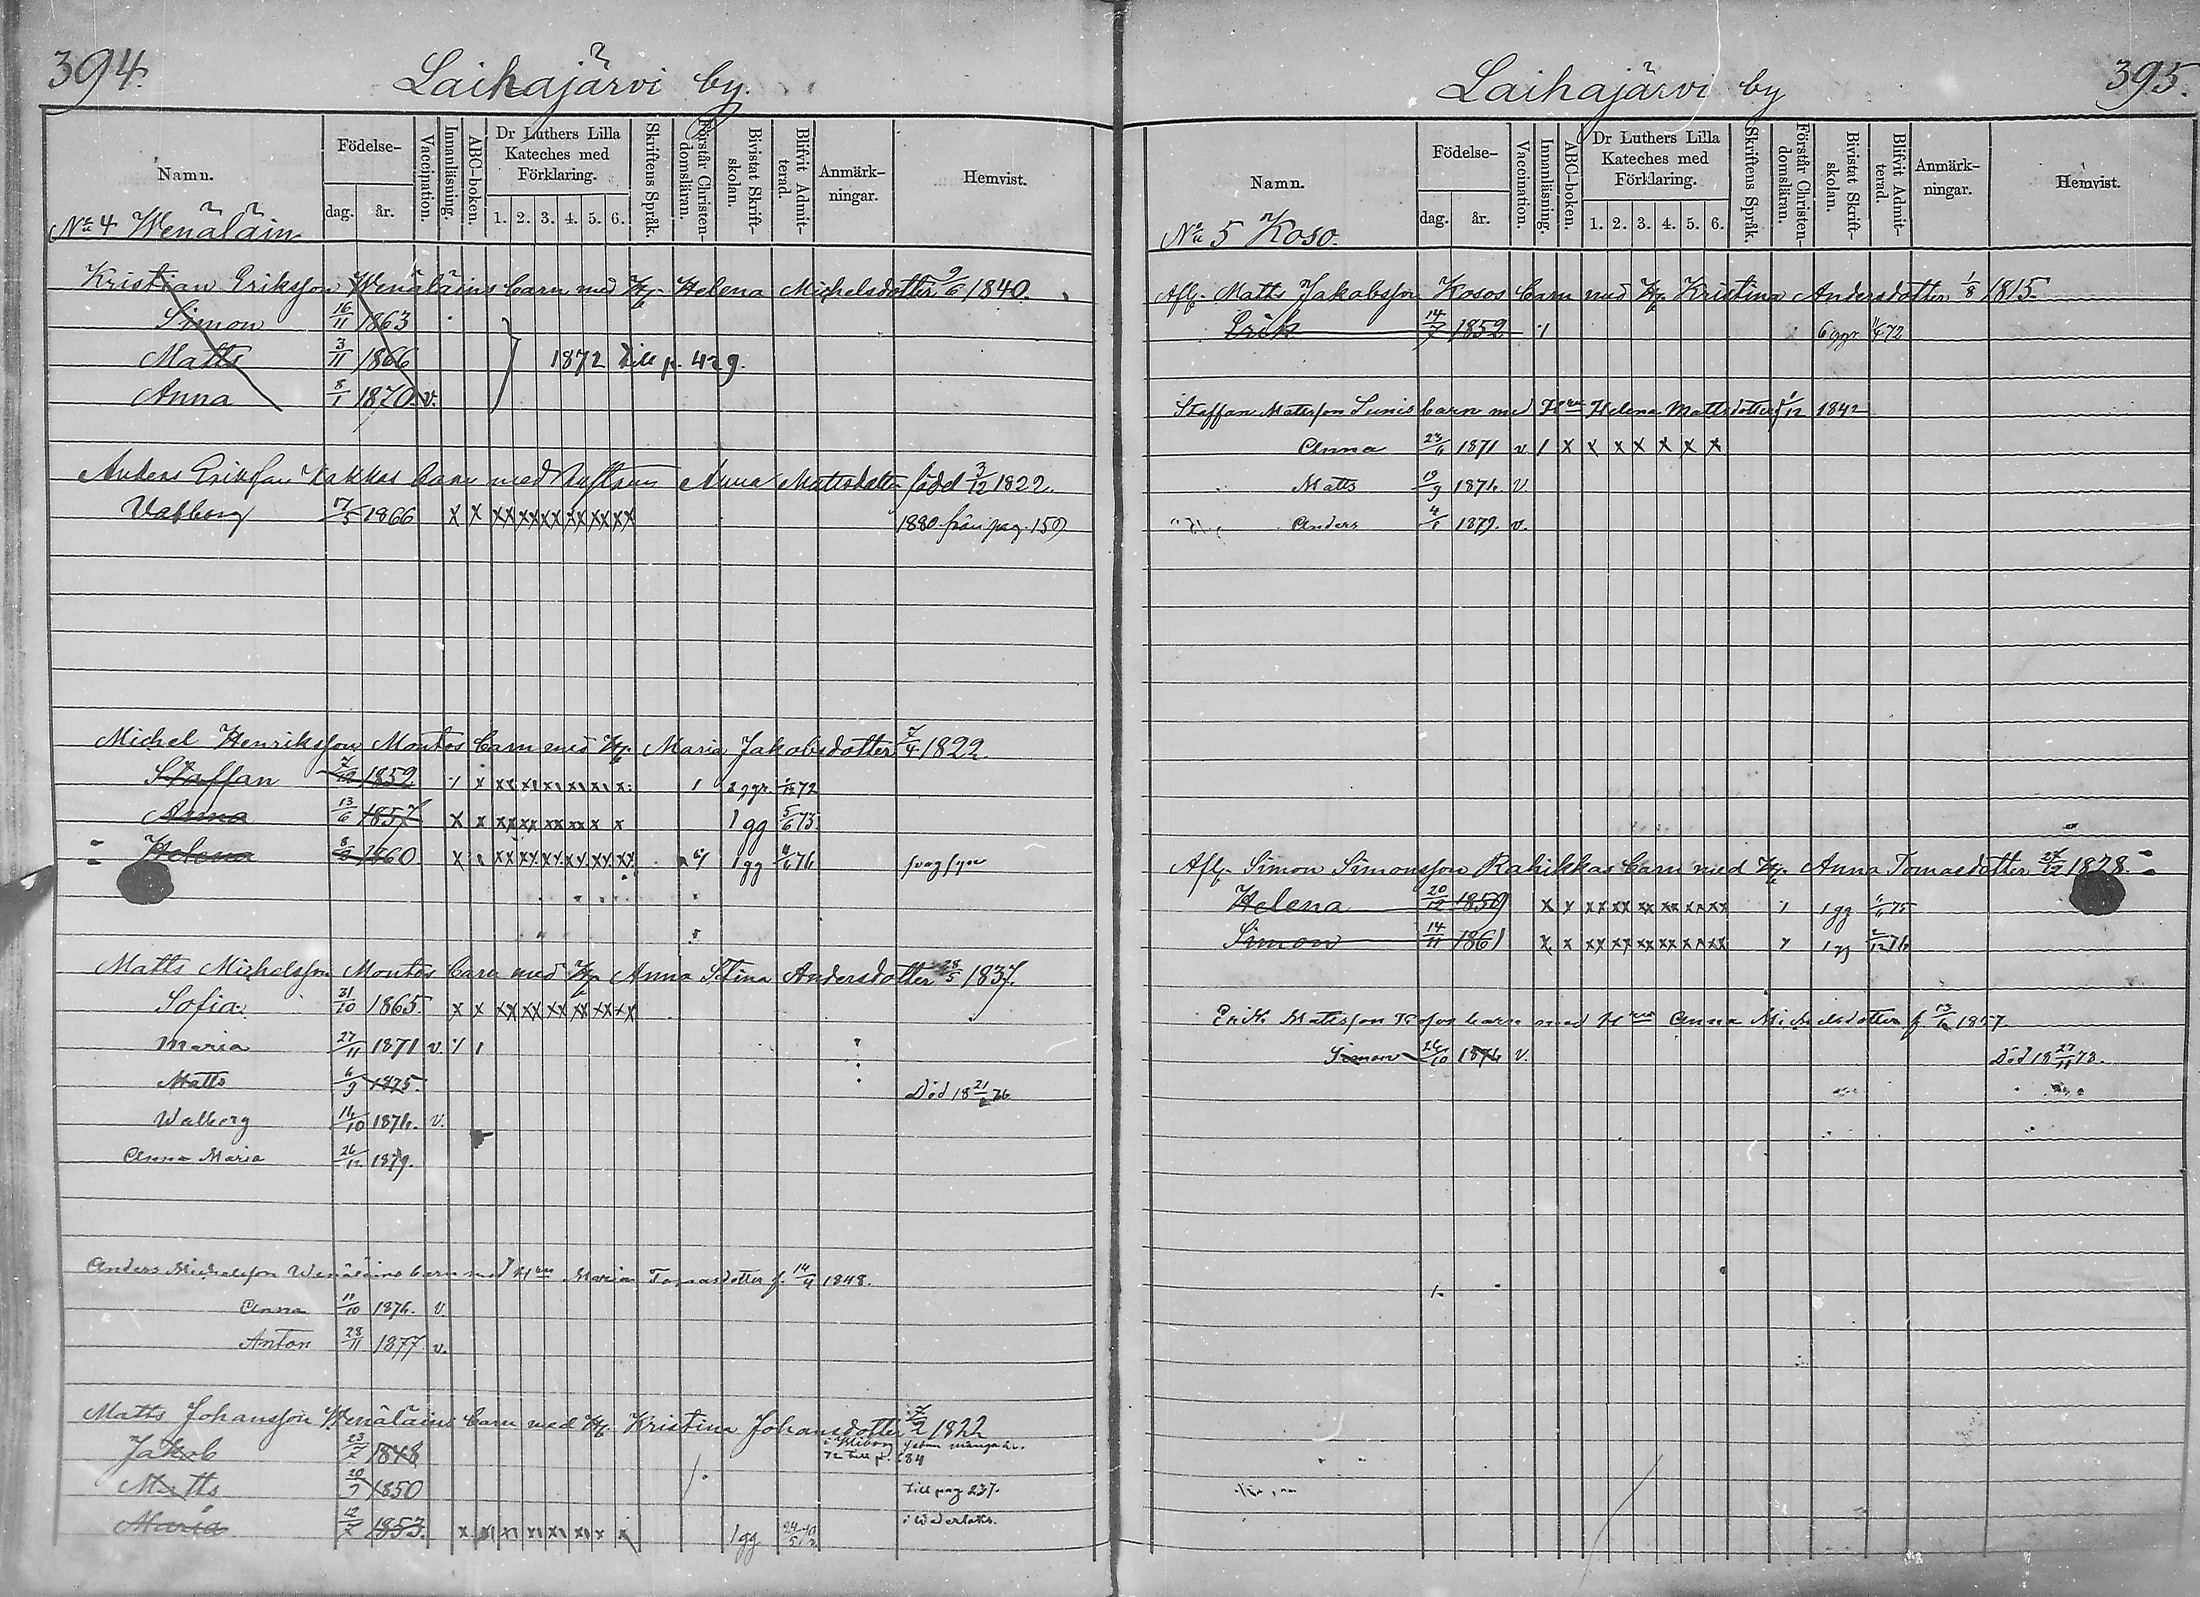 394.
Laihajärvi by.
Namn.
Födelse-
dag. år.
Vaccination.
Innanläsning.
ABC-boken.
Dr Luthers Lilla Kateches med Förklaring.
1. 2. 3. 4. 5. 6.
Skriftens Språk.
Förstår Christen-domsläran.
Bivistat Skrift-skolan.
Blifvit Admit-terad.
Anmärk-ningar.
Hemvist.
No 4 Wenäläin
Kristian Eriksson Wenäläins barn med H. Helena Michelsdotter 9/6 1840.
Simon 16/11 1863
Matts 3/11 1866 1872 till p. 429.
Anna 8/1 1870. v.
Anders Eriksson Kakkos barn med Hustrun Anna Mattsdotter född 3/12 1822.
Valborg 17/5 1866 x x xx xx xx xx xx xx 1880 från pag. 159
Michel Henriksson Montos barn med H. Maria Jakobsdotter 7/4 1822.
Staffan 1852 2 ggr. 72
Anna 13/6 1857 x x xx xx xx xx x x 1 gg 5/6 73.
Helena 1860 1 gg 76 svag syn
Matts Michelsson Montos barn med H. Anna Stina Andersdotter 28/5 1837.
Sofia 31/10 1865. x x xx xx xx xx xx xx
Maria 27/11 1871 v.
Matts 6/9 1875. Död 18 21/6 76
Walborg 14/10 1876. v.
Anna Maria 26/12 1879.
Anders Michelsson Wenäläins barn med H Maria Tomasdotter f. 14/4 1848.
Anna 11/10 1876. v
Anton 28/11 1877 v.
Matts Johansson Wenäläins barn med H. Kristina Johansdotter 7/2 1822
Jakob 23/7 1848 i Wiborg sedan många år. 72 till p. 184
Matts 20/7 1850 till pag 237.
Maria 12/7 1853. 1 gg 24/5 i Wederlaks.
395.
Laihajärvi by
Namn.
Födelse-
dag. år.
Vaccination.
Innanläsning.
ABC-boken.
Dr Luthers Lilla Kateches med Förklaring.
1. 2. 3. 4. 5. 6.
Skriftens Språk.
Förstår Christen-domsläran.
Bivistat Skrift-skolan.
Blifvit Admit-terad.
Anmärk-ningar.
Hemvist.
No 5 Koso.
Afl. Matts Jakobsson Kosos barn med H. Kristina Andersdotter 1/8 1815.
Erik 14/7 1852 6 ggr. 72
Staffan Matsson Sunis barn med H Helena Mattsdotter f 1/12 1842
Anna 23/6 1871 v. 1 x x x x x x x
Matts 19/9 1876. v.
Anders 4/1 1879. v.
Afl. Simon Simonsson Rahikkas barn med H. Anna Tomasdotter 27/12 1828.
Helena 20/12 1859 x x xx xx xx xx xx xx 1 gg 75
Simon 14/11 1861 x x xx xx xx xx xx xx 1 gg 2/12 76
Erik Matsson Kosos barn med H Anna Michelsdotter f 13/6 1857
Simon 26/10 1876 v. Död 18 27/11 78.